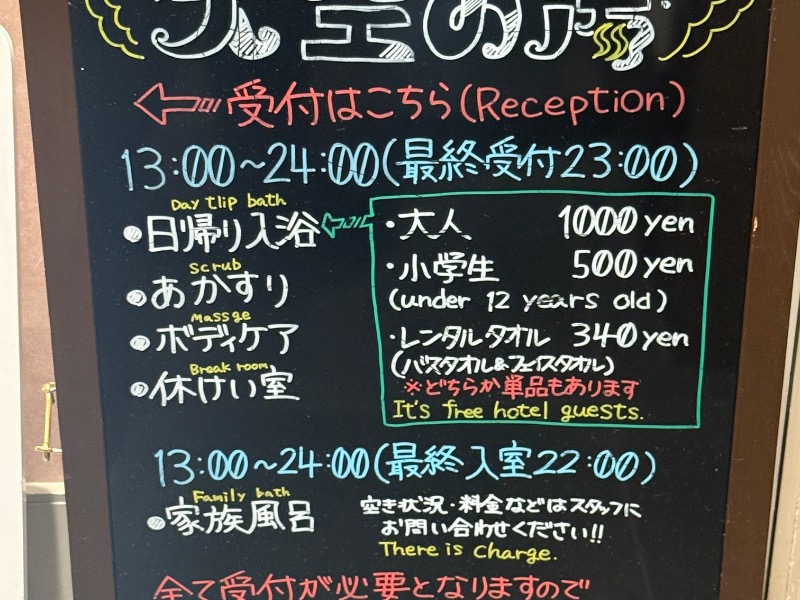 天空の湯
受付はこちら(Reception)
13:00~24:00(最終受付23:00)
Day tlip bath
・日帰り入浴
・大人 1000 yen
・小学生 500 yen
(under 12 years old)
・レンタルタオル 340 yen
(バスタオル&フェイスタオル)
※どちらか単品もあります
It's free hotel guests.
Scrub
・あかすり
Massge
・ボディケア
Break room
・休けい室
13:00~24:00(最終入室22:00)
Family bath
・家族風呂
空き状況・料金などはスタッフに
お問い合わせください!!
There is charge.
全て受付が必要となりますので